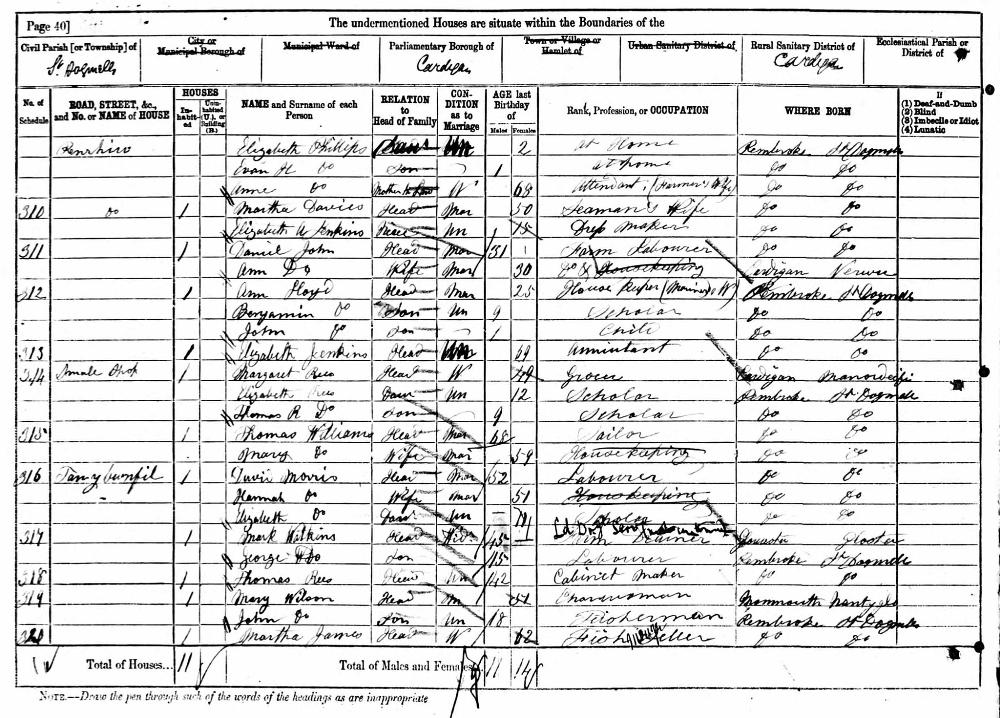 Page 40] The undermentioned Houses are situate within the Boundaries of the
Civil Parish [or Township] of City or Municipal Borough of Municipal Ward of Parliamentary Borough of Town or Village or Hamlet of Urban Sanitary District of Rural Sanitary District of Ecclesiastical Parish or District of
St. Dogmells Cardigan Cardigan
No. of Schedule ROAD, STREET, &c., and No. or NAME of HOUSE HOUSES Inhabited Uninhabited (U.), or Building (B.) NAME and Surname of each Person RELATION to Head of Family CONDITION as to Marriage AGE last Birthday of Males Females Rank, Profession, or OCCUPATION WHERE BORN If (1) Deaf-and-Dumb (2) Blind (3) Imbecile or Idiot (4) Lunatic
Penrhiw Elizabeth Phillips Un 2 at Home Pembroke St Dogmells
Evan H Do Son 1 at home Do Do
Anne Do Mother in law W 68 Attendant (Farmer's Do Do
310 Do 1 Martha Davies Head Mar 50 Seaman's Wife Do Do
Elizabeth A Jenkins Niece Un 15 Dress Maker Do Do
311 1 Daniel John Head Mar 31 Farm Labourer Do Do
Ann Do Wife Mar 30 Housekeeping Cardigan Verwic
312 1 Ann Lloyd Head Mar 25 House Keeper (Mariner's W) Pembroke St Dogmells
Benjamin Do Son Un 9 Scholar Do Do
John Do Son 1 Child Do Do
313 1 Elizabeth Jenkins Head Un 69 Annuitant Do Do
314 Smale Shop 1 Margaret Rees Head W 49 Grocer Cardigan Manordeifi
Elizabeth Rees Daur Un 12 Scholar Pembroke St Dogmells
Thomas R Do Son 9 Scholar Do Do
315 1 Thomas Williams Head Mar 68 Sailor Do Do
Mary Do Wife Mar 59 Housekeeping Do Do
316 1 David Morris Head Mar 52 Labourer Do Do
Hannah Do Wife Mar 51 Housekeeping Do Do
Elizabeth Do Daur Un 11 Scholar Do Do
317 1 Mark Wilkins Head Wid 45 Gloster
George Do Son 15 Labourer Pembroke St Dogmells
318 1 Thomas Rees Head Un 42 Cabinet Maker Do Do
319 1 Mary Wilson Head 51 Charwoman Monmouth Nantyglo
John Do Son Un 18 Fisherman Pembroke St Dogmells
320 1 Martha James Head W 62 Fish Seller Do Do
Total of Houses... 11 Total of Males and Females 11 14
NOTE.—Draw the pen through such of the words of the headings as are inappropriate